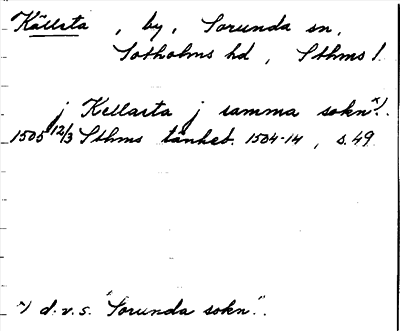 Källsta, by, Sorunda sn,
Sotholms hd, Sthms l.
j Kellasta j samma sokn x).
1505 12/3 Sthms tänkeb. 1504-14, s. 49
x) d.v.s. "Sorunda sokn".